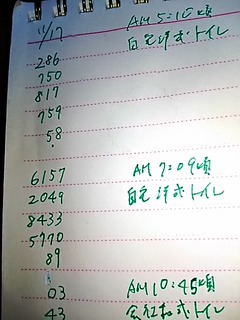 11/17 AM 5:10頃
286 自宅洋式トイレ
750
817
759
58
6157 AM 7:09頃
2049 自宅洋式トイレ
8433
5770
89
03 AM 10:45頃
43 会社和式トイレ